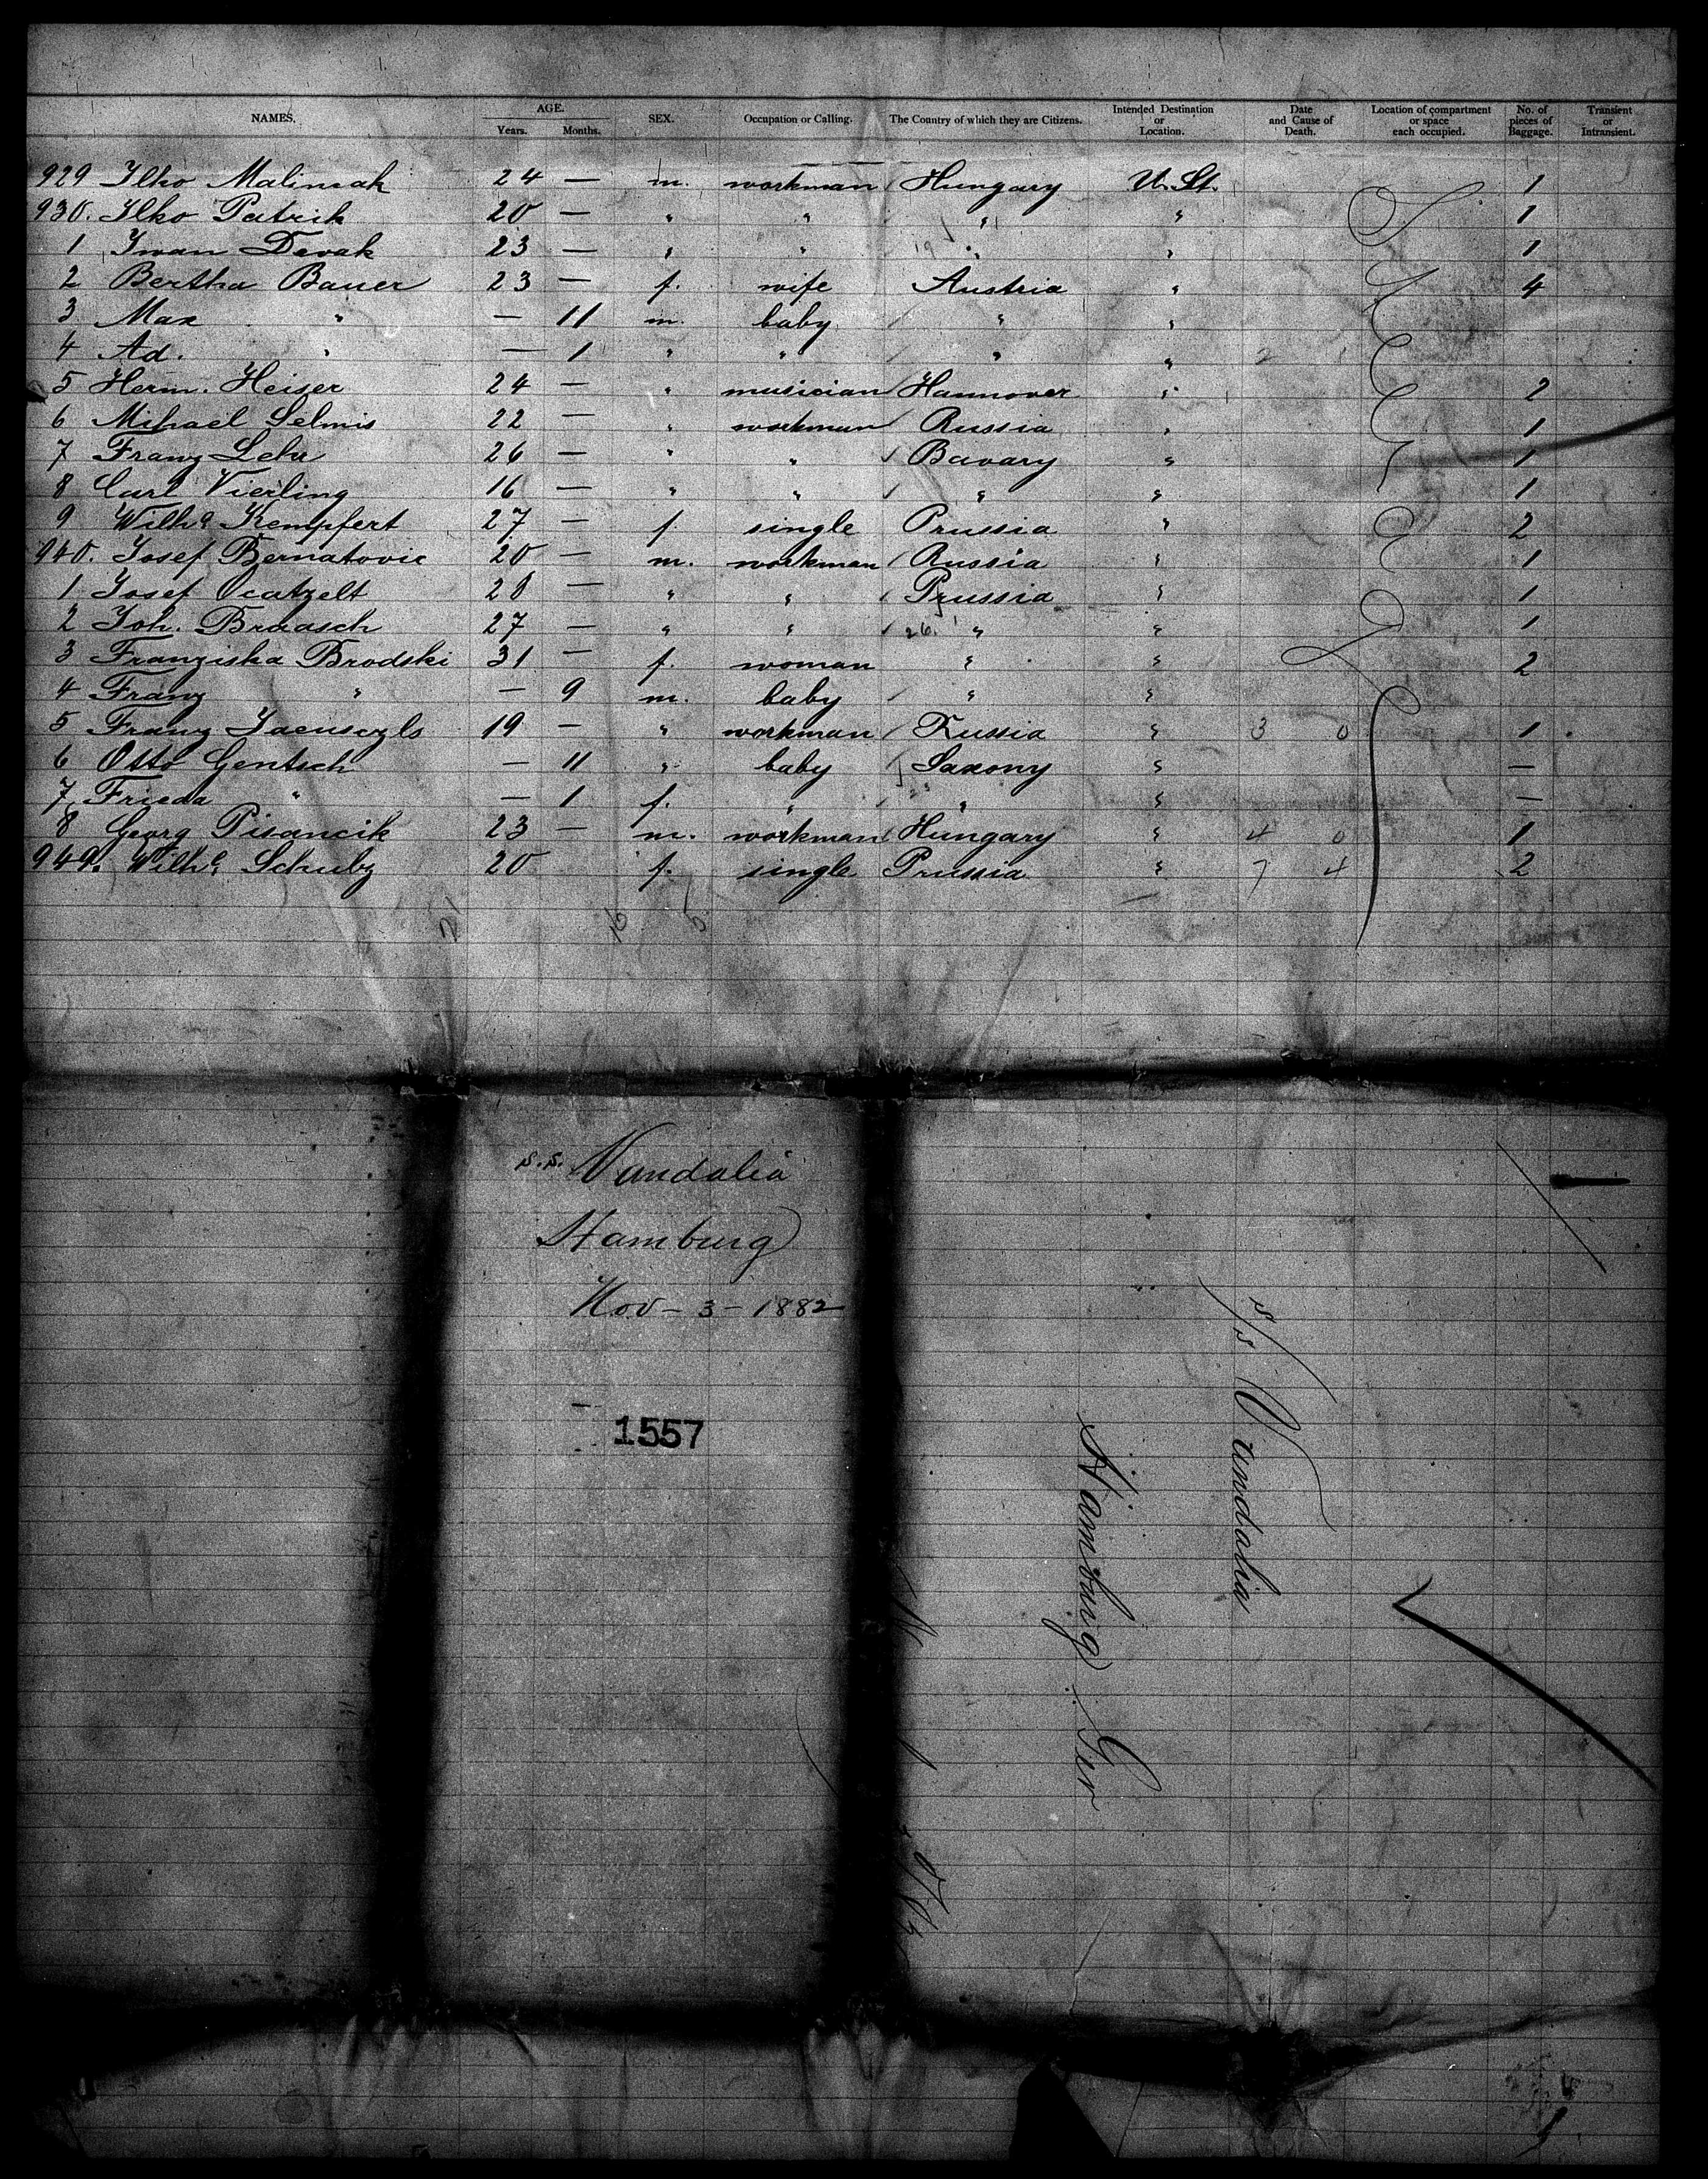 NAMES. AGE. Years. Months. SEX. Occupation or Calling. The Country of which they are Citizens. Intended Destination or Location. Date and Cause of Death. Location of compartment or space each occupied. No. of pieces of Baggage. Transient or Intransient.
929 Ilko Malinsak 24 — m. workman Hungary U. St. 1
930. Ilko Patrik 20 — " " " " 1
1 Iwan Devak 23 — " " " " 1
2 Bertha Bauer 23 — f. wife Austria " 4
3 Max " — 11 m. baby " "
4 Ad. " — 1 " " " "
5 Herm. Heiser 24 — " musician Hannover " 2
6 Mihael Selmis 22 — " workman Russia " 1
7 Franz Lehr 26 — " " Bavary " 1
8 Carl Vierling 16 — " " " " 1
9 Wilhe Kempfert 27 — f. single Prussia " 2
940. Josef Bernatovic 20 — m. workman Russia " 1
1 Josef Ocatzelt 28 — " " Prussia " 1
2 Joh. Braasch 27 — " " " " 1
3 Franziska Brodski 31 — f. woman " " 2
4 Franz " — 9 m. baby " "
5 Franz 19 — " workman Russia " 3 0 1
6 Otto Gentsch — 11 " baby Saxony " —
7 Frieda " — 1 f. " " " —
8 Georg Pisancik 23 — m. workman Hungary " 4 0 1
949. Wilhe Schulz 20 f. single Prussia " 7 4 2
21 16 5
s.s. Vandalia
Hamburg
Nov - 3 - 1882
1557
S/S Vandalia
Hamburg Ger